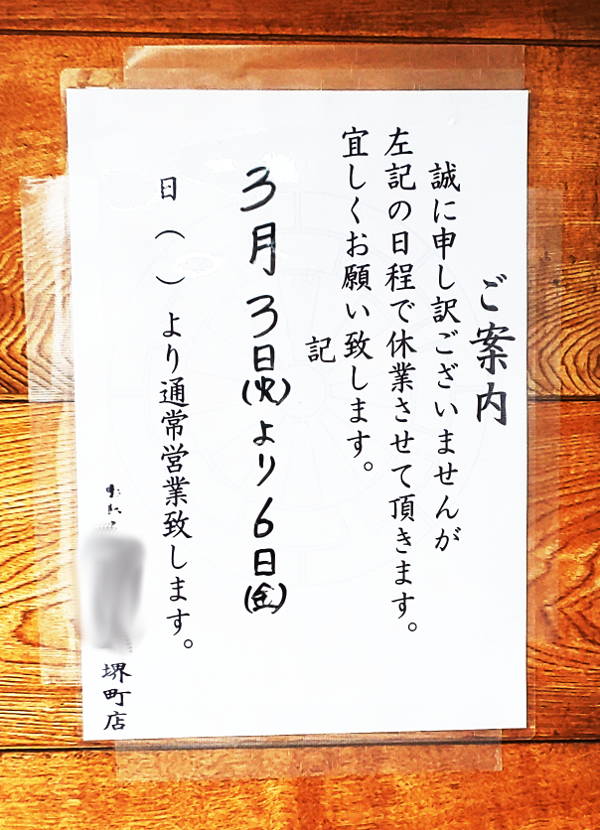 ご案内
誠に申し訳ございませんが
左記の日程で休業させて頂きます。
宜しくお願い致します。
記
3月3日(火)より6日(金)
日（　）より通常営業致します。
堺町店